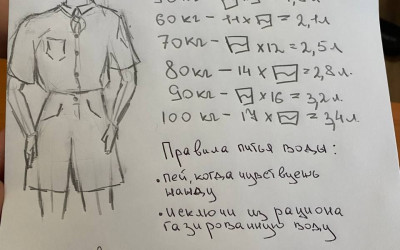 60 кг – 11 x = 2,1 л
70 кг – x 12 = 2,5 л
80 кг – 14 x = 2,8 л.
90 кг – x 16 = 3,2 л.
100 кг – 17 x = 3,4 л
Правила питья воды:
• пей, когда чувствуешь
жажду
• исключи из рациона
газированную воду